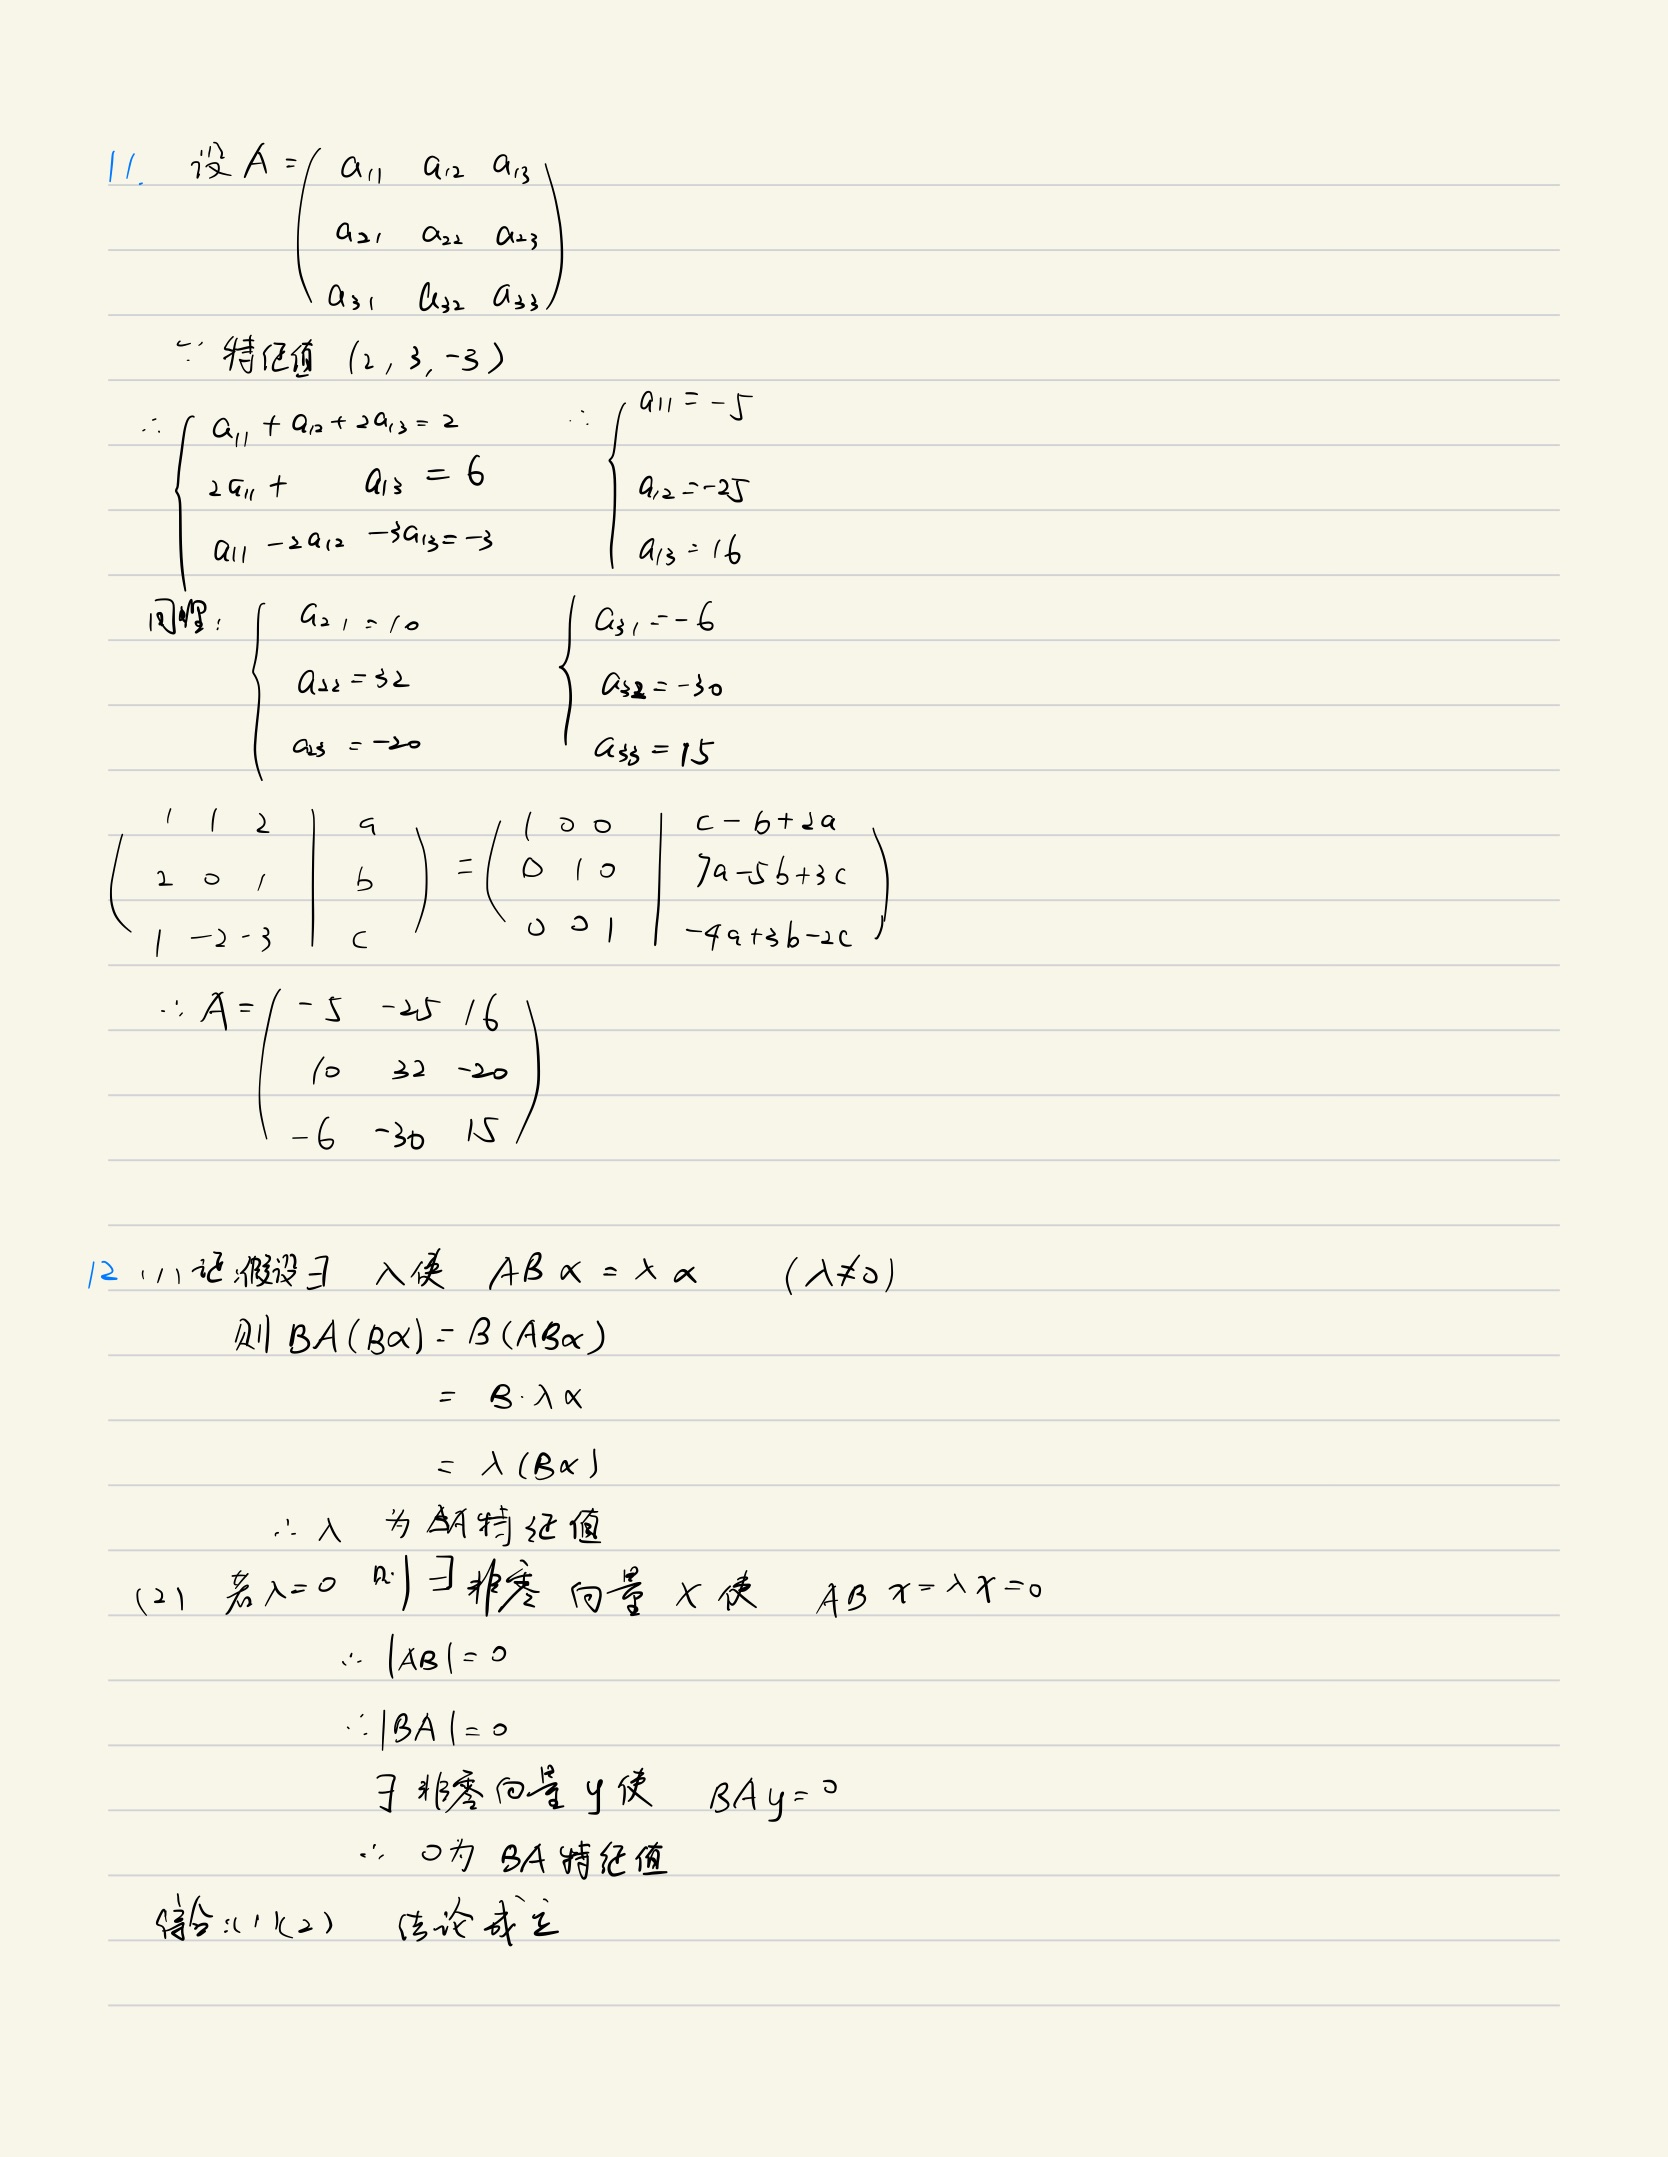 11. 设 A = ( a11 a12 a13
a21 a22 a23
a31 a32 a33 )
∵ 特征值 (2, 3, -3)
∴ { a11 + a12 + 2a13 = 2 ∴ { a11 = -5
2a11 + a13 = 6 a12 = -25
a11 - 2a12 - 3a13 = -3 a13 = 16
同理: { a21 = 10 { a31 = -6
a22 = 32 a32 = -30
a23 = -20 a33 = 15
( 1 1 2 | a ) = ( 1 0 0 | c - b + 2a )
2 0 1 | b 0 1 0 | 7a - 5b + 3c
1 -2 -3 | c 0 0 1 | -4a + 3b - 2c
∴ A = ( -5 -25 16
10 32 -20
-6 -30 15 )
12 (1) 证:假设∃ λ使 ABα = λα (λ≠0)
则 BA(Bα) = B(ABα)
= B·λα
= λ(Bα)
∴ λ 为 BA特征值
(2) 若λ=0 则∃非零向量 x 使 ABx = λx = 0
∴ |AB| = 0
∴ |BA| = 0
∃非零向量 y 使 BAy = 0
∴ 0为 BA特征值
综合:(1)(2) 结论成立